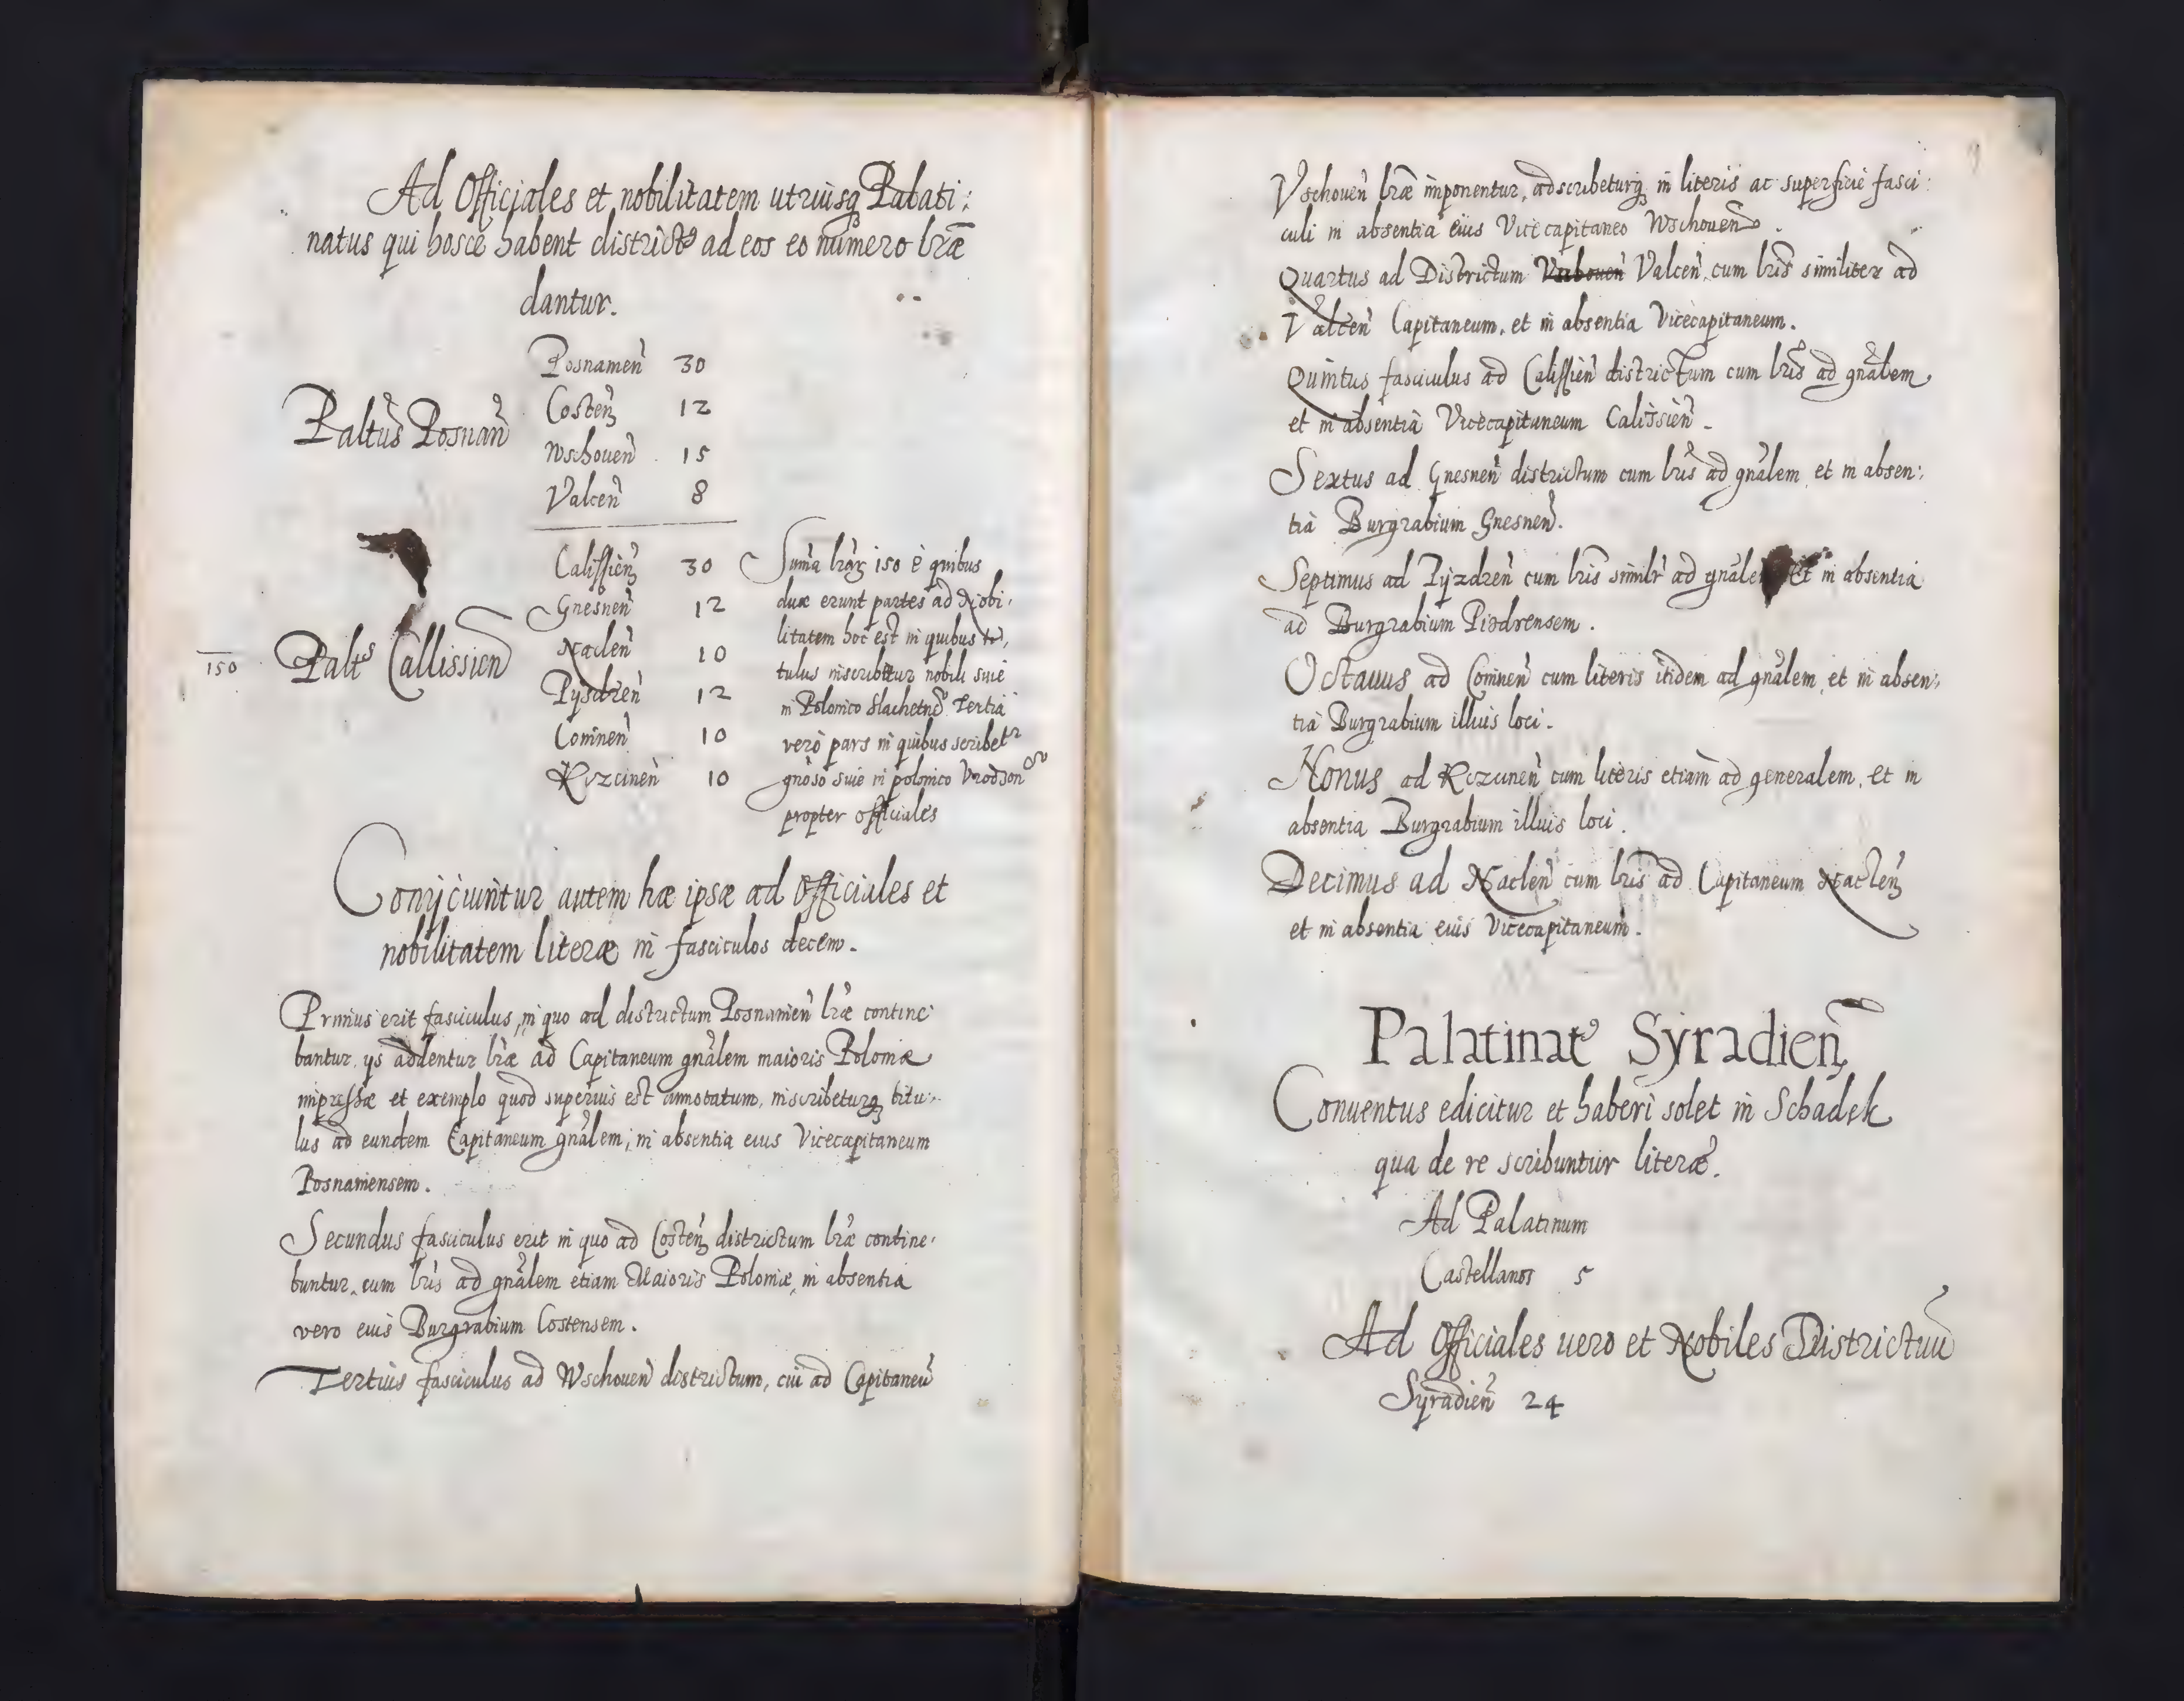 Ad Officiales et nobilitatem utriusq Palati:
natus qui hosce habent districtus ad eos eo numero lr̃æ
dantur.
Palt̃us Posnan̄
Posnamen̄ 30
Costen̄ 12
Wschouen̄ 15
Valcen̄ 8
150
Palt̃s Callissien̄
Calissien̄ 30
Gnesnen̄ 12
Naclen̄ 10
Pÿsdren̄ 12
Coninen̄ 10
Kczcinen̄ 10
Sum̄a lr̃aꝝ 150 è quibus
duæ erunt partes ad Nobi,
litatem hoc est in quibus ti,
tulus inscribitur nobili siue
in Polonico Slachetne͠ Tertia
verò pars in quibus scribetur
gnõso siue in polonico Vrodzon
propter officiales
Conijciuntur autem hæ ipsæ ad Officiales et
nobilitatem literæ in fasciculos decem.
Primus erit fasciculus, in quo ad districtum Posnamien̄ lr̃æ contine
bantur, ijs addentur lr̃æ ad Capitaneum gñalem maioris Poloniæ
impressæ et exemplo quod superius est annotatum, inscribeturq titu,
lus ad eundem Capitaneum gñalem, in absentia eius Vicecapitaneum
Posnaniensem.
Secundus fasciculus erit in quo ad Costen̄ districtum lr̃æ contine,
buntur, cum lr̃is ad gñalem etiam Maioris Poloniæ, in absentia
vero eius Burgrabium Costensem.
Tertius fasciculus ad Wschouen̄ districtum, cui ad Capitaneū
Vschouen̄ lr̃æ imponentur, adscribeturq in literis ac superficie fasci:
culi in absentia eius Vicecapitaneo Wschouen̄.
Quartus ad Districtum Valcen̄ cum lr̃is similiter ad
Valcen̄ Capitaneum, et in absentia Vicecapitaneum.
Quintus fasciculus ad Calissien̄ districtum cum lr̃is ad gñalem,
et in absentia Vicecapitaneum Calissien̄.
Sextus ad Gnesnen̄ districtum cum lr̃is ad gñalem, et in absen,
tia Burgrabium Gnesnen̄.
Septimus ad Pÿzdren̄ cum lr̃is similr̃ ad gñalem Et in absentia
ad Burgrabium Pizdrensem.
Octauus ad Coninen̄ cum literis itidem ad gñalem, et in absen,
tia Burgrabium illius loci.
Nonus ad Kczcinen̄ cum literis etiam ad generalem, et in
absentia Burgrabium illius loci.
Decimus ad Naclen̄ cum lr̃is ad Capitaneum Naclen̄
et in absentia eius Vicecapitaneum.
Palatinat9 Syradien̄
Conuentus edicitur et haberi solet in Schadek
qua de re scribuntur literæ.
Ad Palatinum
Castellanos 5
Ad Officiales uero et Nobiles Districtuū
Syradien̄ 24